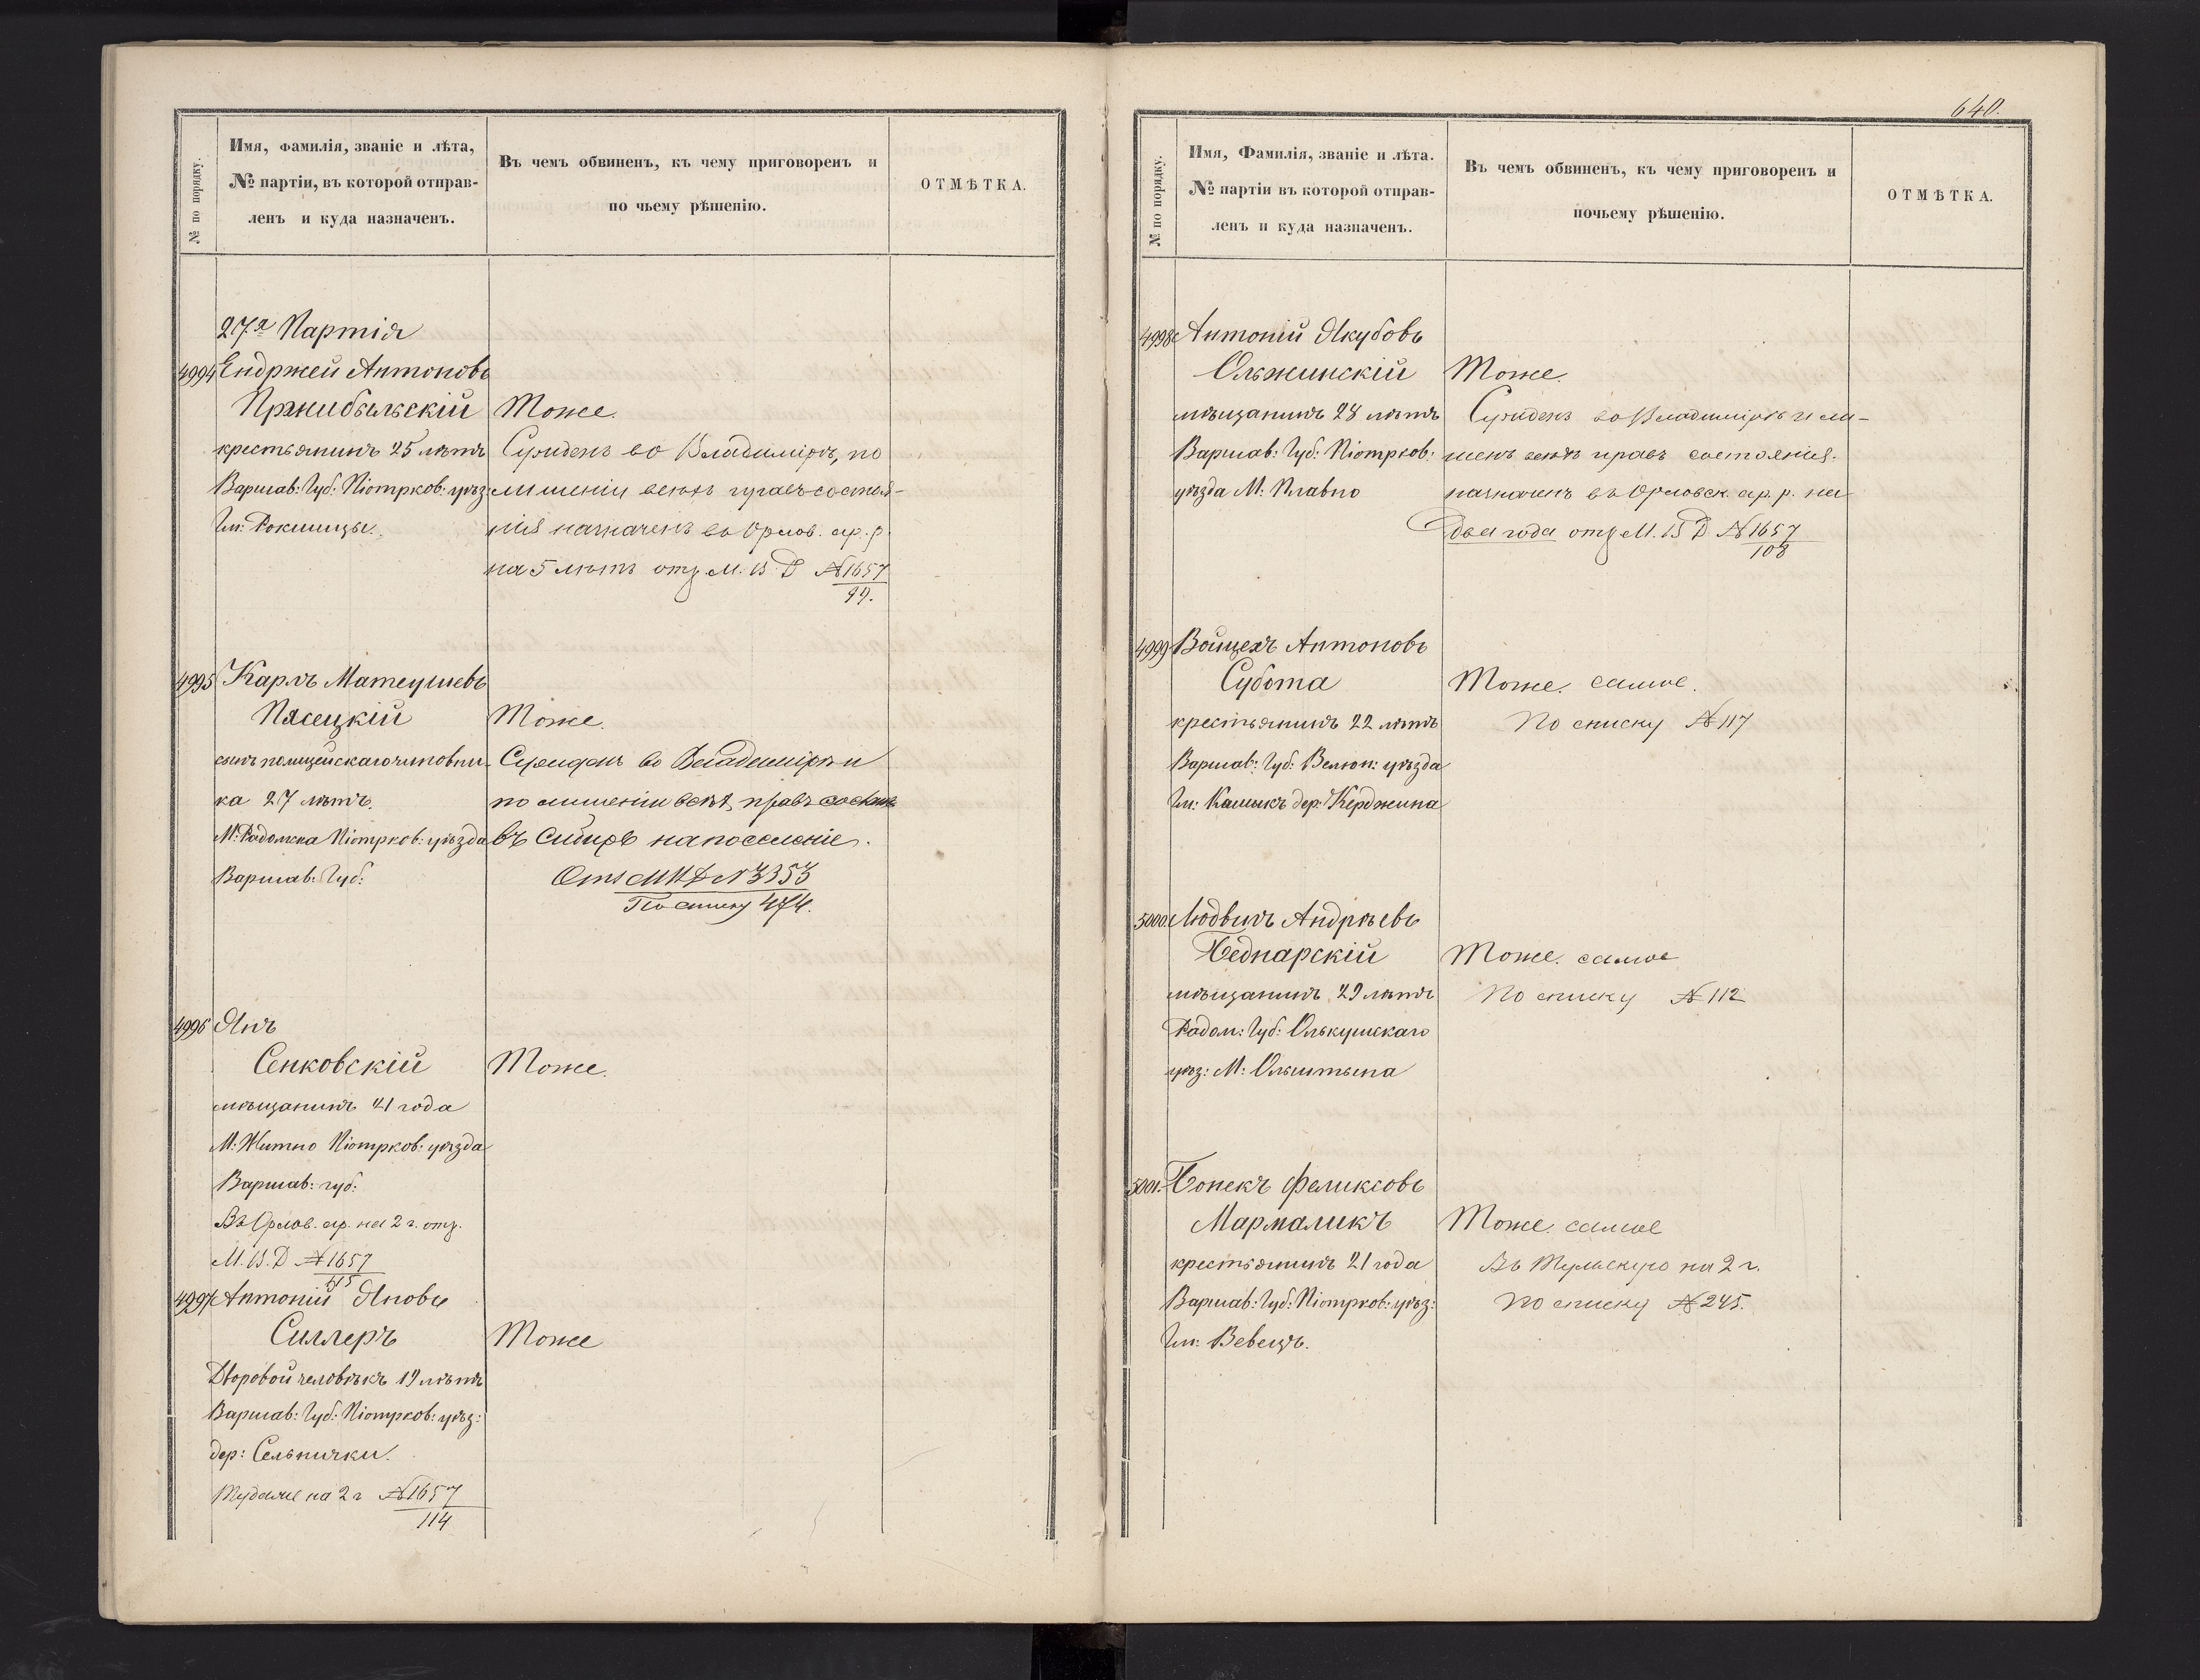 № по порядку.
Имя, фамилія, званіе и лѣта,
№ партіи, въ которой отправ-
ленъ и куда назначенъ.
Въ чемъ обвиненъ, къ чему приговоренъ и
по чьему рѣшенію.
ОТМѢТКА.
27.я Партія
4994 Ендржей Антоновъ
Пржибыльскій
крестьянинъ 25 лѣтъ
Варшав: Губ: Піотрков: уѣз:
Гм: Рокшицы.
Тоже.
Сужденъ во Владимірѣ, по
лишеніи всѣхъ правъ состоя-
нія назначенъ въ Орлов. ар. р.
на 5 лѣтъ отз. М. В. Д №1657
99.
4995 Карлъ Матеушевъ
Пясецкій
сынъ полицейскаго чиновни-
ка 27 лѣтъ.
М: Радомска Піотрков: уѣзда
Варшав: Губ:
Тоже.
Сужденъ во Владимірѣ и
по лишеніи всѣхъ правъ состоян
въ Сибирь на поселеніе.
Отз МВД №3353
По списку 474.
4996 Янъ
Сенковскій
мѣщанинъ 21 года
М: Житно Піотрков: уѣзда
Варшав: губ:
Въ Орлов. ар. на 2 г. отз.
М. В. Д №1657
115
Тоже.
4997 Антоній Яновъ
Силлеръ
Дворовой человѣкъ 19 лѣтъ
Варшав: Губ: Піотрков: уѣз:
дер: Сельнички.
Тудаже на 2 г №1657
114
Тоже
640.
№ по порядку.
Имя, Фамилія, званіе и лѣта.
№ партіи въ которой отправ-
ленъ и куда назначенъ.
Въ чемъ обвиненъ, къ чему приговоренъ и
почьему рѣшенію.
ОТМѢТКА.
4998 Антоній Якубовъ
Ольжинскій
мѣщанинъ 28 лѣтъ
Варшав: Губ: Піотрков:
уѣзда М: Плавно
Тоже.
Сужденъ во Владимірѣ и ли-
шенъ всѣхъ правъ состоянія.
назначенъ въ Орловск. ар. р. на
два года отз М. В Д №1657
108
4999 Войцехъ Антоновъ
Субота
крестьянинъ 22 лѣтъ
Варшав: Губ: Велюн: уѣзда
Гм: Камыкъ дер: Керджина
Тоже. самое.
По списку №117
5000. Людвигъ Андрѣевъ
Беднарскій
мѣщанинъ 29 лѣтъ
Радом: Губ: Олькушскаго
уѣз: М: Ольштына
Тоже. самое
По списку №112
5001. Бонекъ Феликсовъ
Мармаликъ
крестьянинъ 21 года
Варшав: Губ: Піотрков: уѣз:
Гм: Вевецъ.
Тоже. самое
Въ Тульскую на 2 г.
По списку №245.